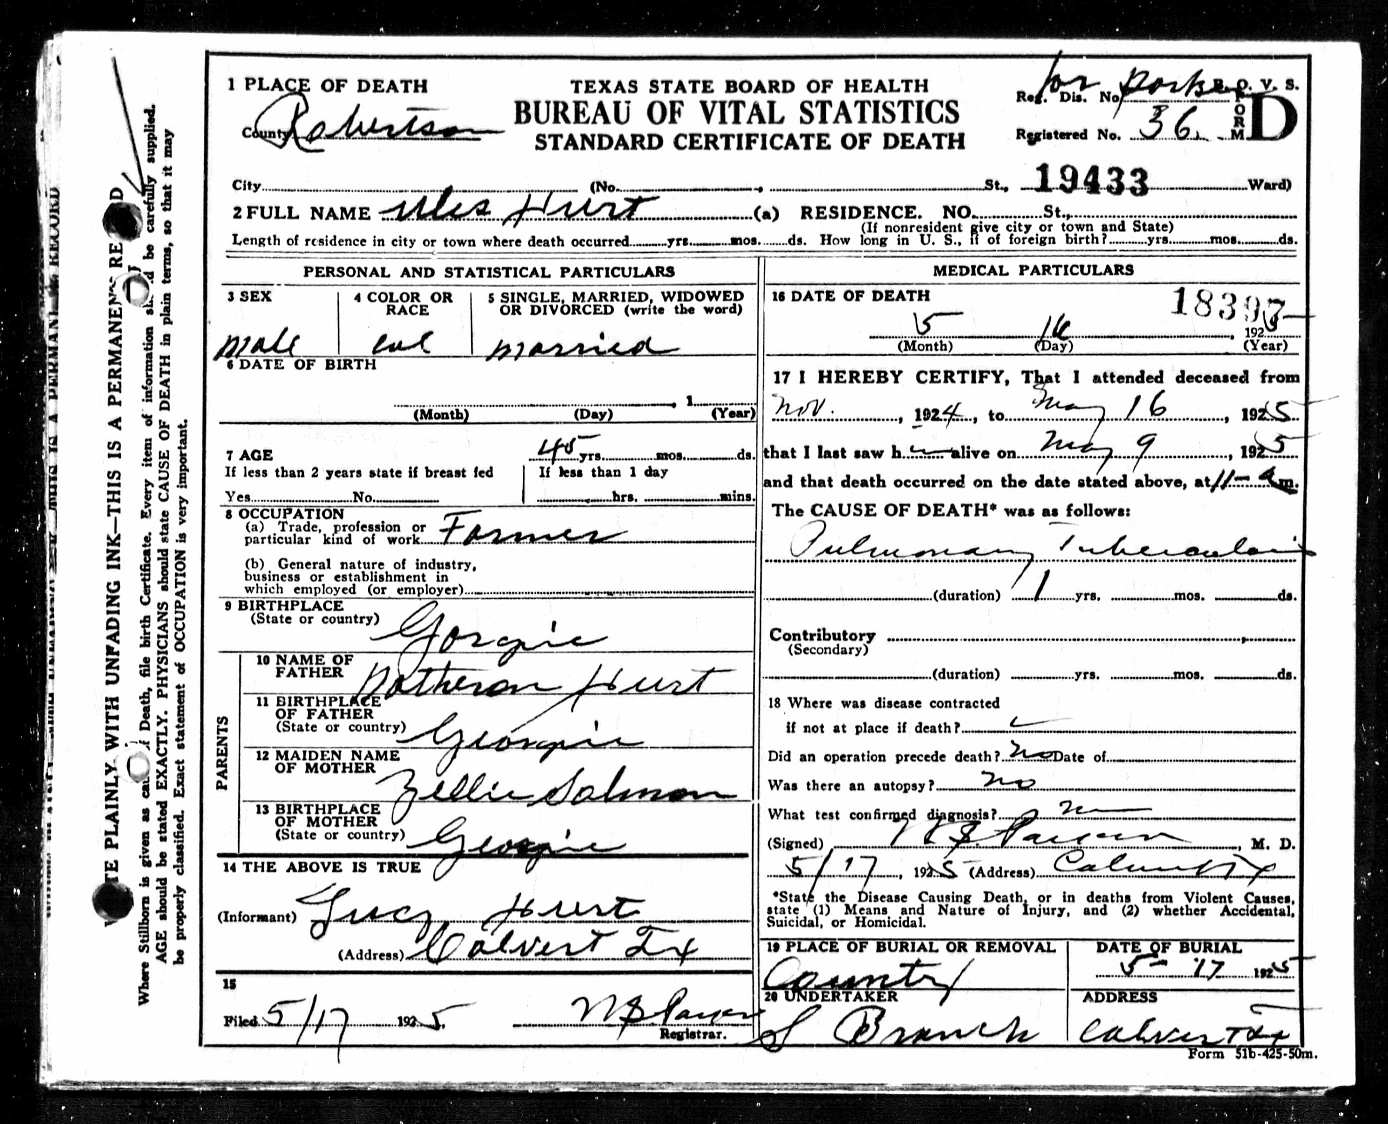 1 PLACE OF DEATH
County Robertson
TEXAS STATE BOARD OF HEALTH
BUREAU OF VITAL STATISTICS
STANDARD CERTIFICATE OF DEATH
B. O. V. S.
FORM D
Reg. Dis. No.
Registered No. 36.
City (No. , St., 19433 Ward)
2 FULL NAME Hurt (a) RESIDENCE. NO. St.,
(If nonresident give city or town and State)
Length of residence in city or town where death occurred yrs. mos. ds. How long in U. S., if of foreign birth? yrs. mos. ds.
PERSONAL AND STATISTICAL PARTICULARS
3 SEX
male
4 COLOR OR RACE
col
5 SINGLE, MARRIED, WIDOWED OR DIVORCED (write the word)
married
6 DATE OF BIRTH
, 1
(Month) (Day) (Year)
7 AGE 45 yrs. mos. ds.
If less than 2 years state if breast fed
Yes No
If less than 1 day
hrs. mins.
8 OCCUPATION
(a) Trade, profession or
particular kind of work Farmer
(b) General nature of industry,
business or establishment in
which employed (or employer)
9 BIRTHPLACE
(State or country) Gorgie
PARENTS
10 NAME OF FATHER Hurt
11 BIRTHPLACE OF FATHER
(State or country) Georgie
12 MAIDEN NAME OF MOTHER Zellie Salmon
13 BIRTHPLACE OF MOTHER
(State or country) Georgie
14 THE ABOVE IS TRUE
(Informant) Lucy Hurt
(Address) Calvert Tx
15
Filed 5/17 1925.
Registrar.
MEDICAL PARTICULARS
16 DATE OF DEATH
18397
5 16 , 1925
(Month) (Day) (Year)
17 I HEREBY CERTIFY, That I attended deceased from
Nov. , 1924, to May 16 , 1925
that I last saw h im alive on May 9 , 1925
and that death occurred on the date stated above, at 11- a m.
The CAUSE OF DEATH* was as follows:
Pulmonary Tuberculosis
(duration) 1 yrs. mos. ds.
Contributory
(Secondary)
(duration) yrs. mos. ds.
18 Where was disease contracted
if not at place if death?
Did an operation precede death? no Date of
Was there an autopsy? no
What test confirmed diagnosis?
(Signed) , M. D.
5/17, 1925 (Address) Calvert Tx
*State the Disease Causing Death, or in deaths from Violent Causes,
state (1) Means and Nature of Injury, and (2) whether Accidental,
Suicidal, or Homicidal.
19 PLACE OF BURIAL OR REMOVAL
County
DATE OF BURIAL
5- 17 1925
20 UNDERTAKER
S Branch
ADDRESS
Calvert Tex
Form 51b-425-50m.
TE PLAINLY WITH UNFADING INK—THIS IS A PERMANENT RE D
Where Stillborn is given as Death, file birth Certificate. Every item of information be carefully supplied.
AGE should be stated EXACTLY. PHYSICIANS should state CAUSE OF DEATH in plain terms, so that it may
be properly classified. Exact statement of OCCUPATION is very important.